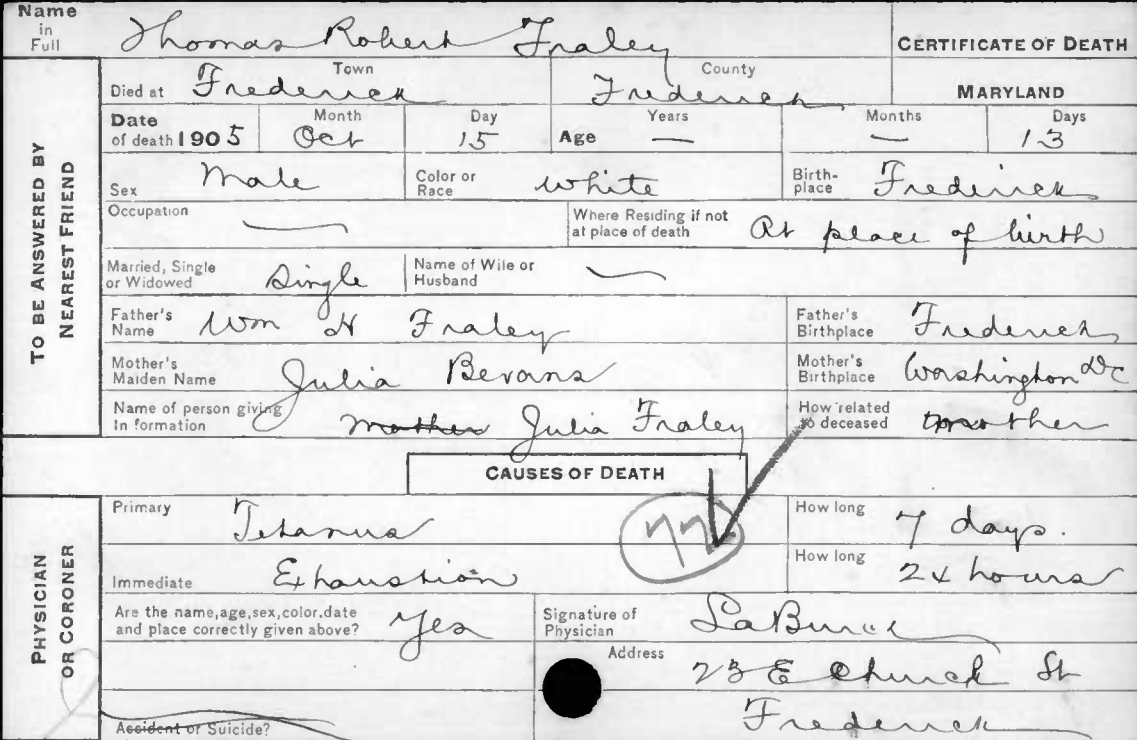 Name in Full Thomas Robert Fraley CERTIFICATE OF DEATH
TO BE ANSWERED BY NEAREST FRIEND
Died at Frederick Town Frederick County MARYLAND
Date of death 1905 Month Oct Day 15 Age Years — Months — Days 13
Sex Male Color or Race White Birth-place Frederick
Occupation — Where Residing if not at place of death At place of birth
Married, Single or Widowed Single Name of Wife or Husband —
Father's Name Wm H Fraley Father's Birthplace Frederick
Mother's Maiden Name Julia Bevans Mother's Birthplace Washington DC
Name of person giving In formation Mother Julia Fraley How related to deceased mother
CAUSES OF DEATH
PHYSICIAN OR CORONER
Primary Tetanus How long 7 days.
Immediate Exhaustion How long 24 hours
Are the name,age,sex,color,date and place correctly given above? Yes Signature of Physician
Address 23 E Church St
Frederick
Accident or Suicide?